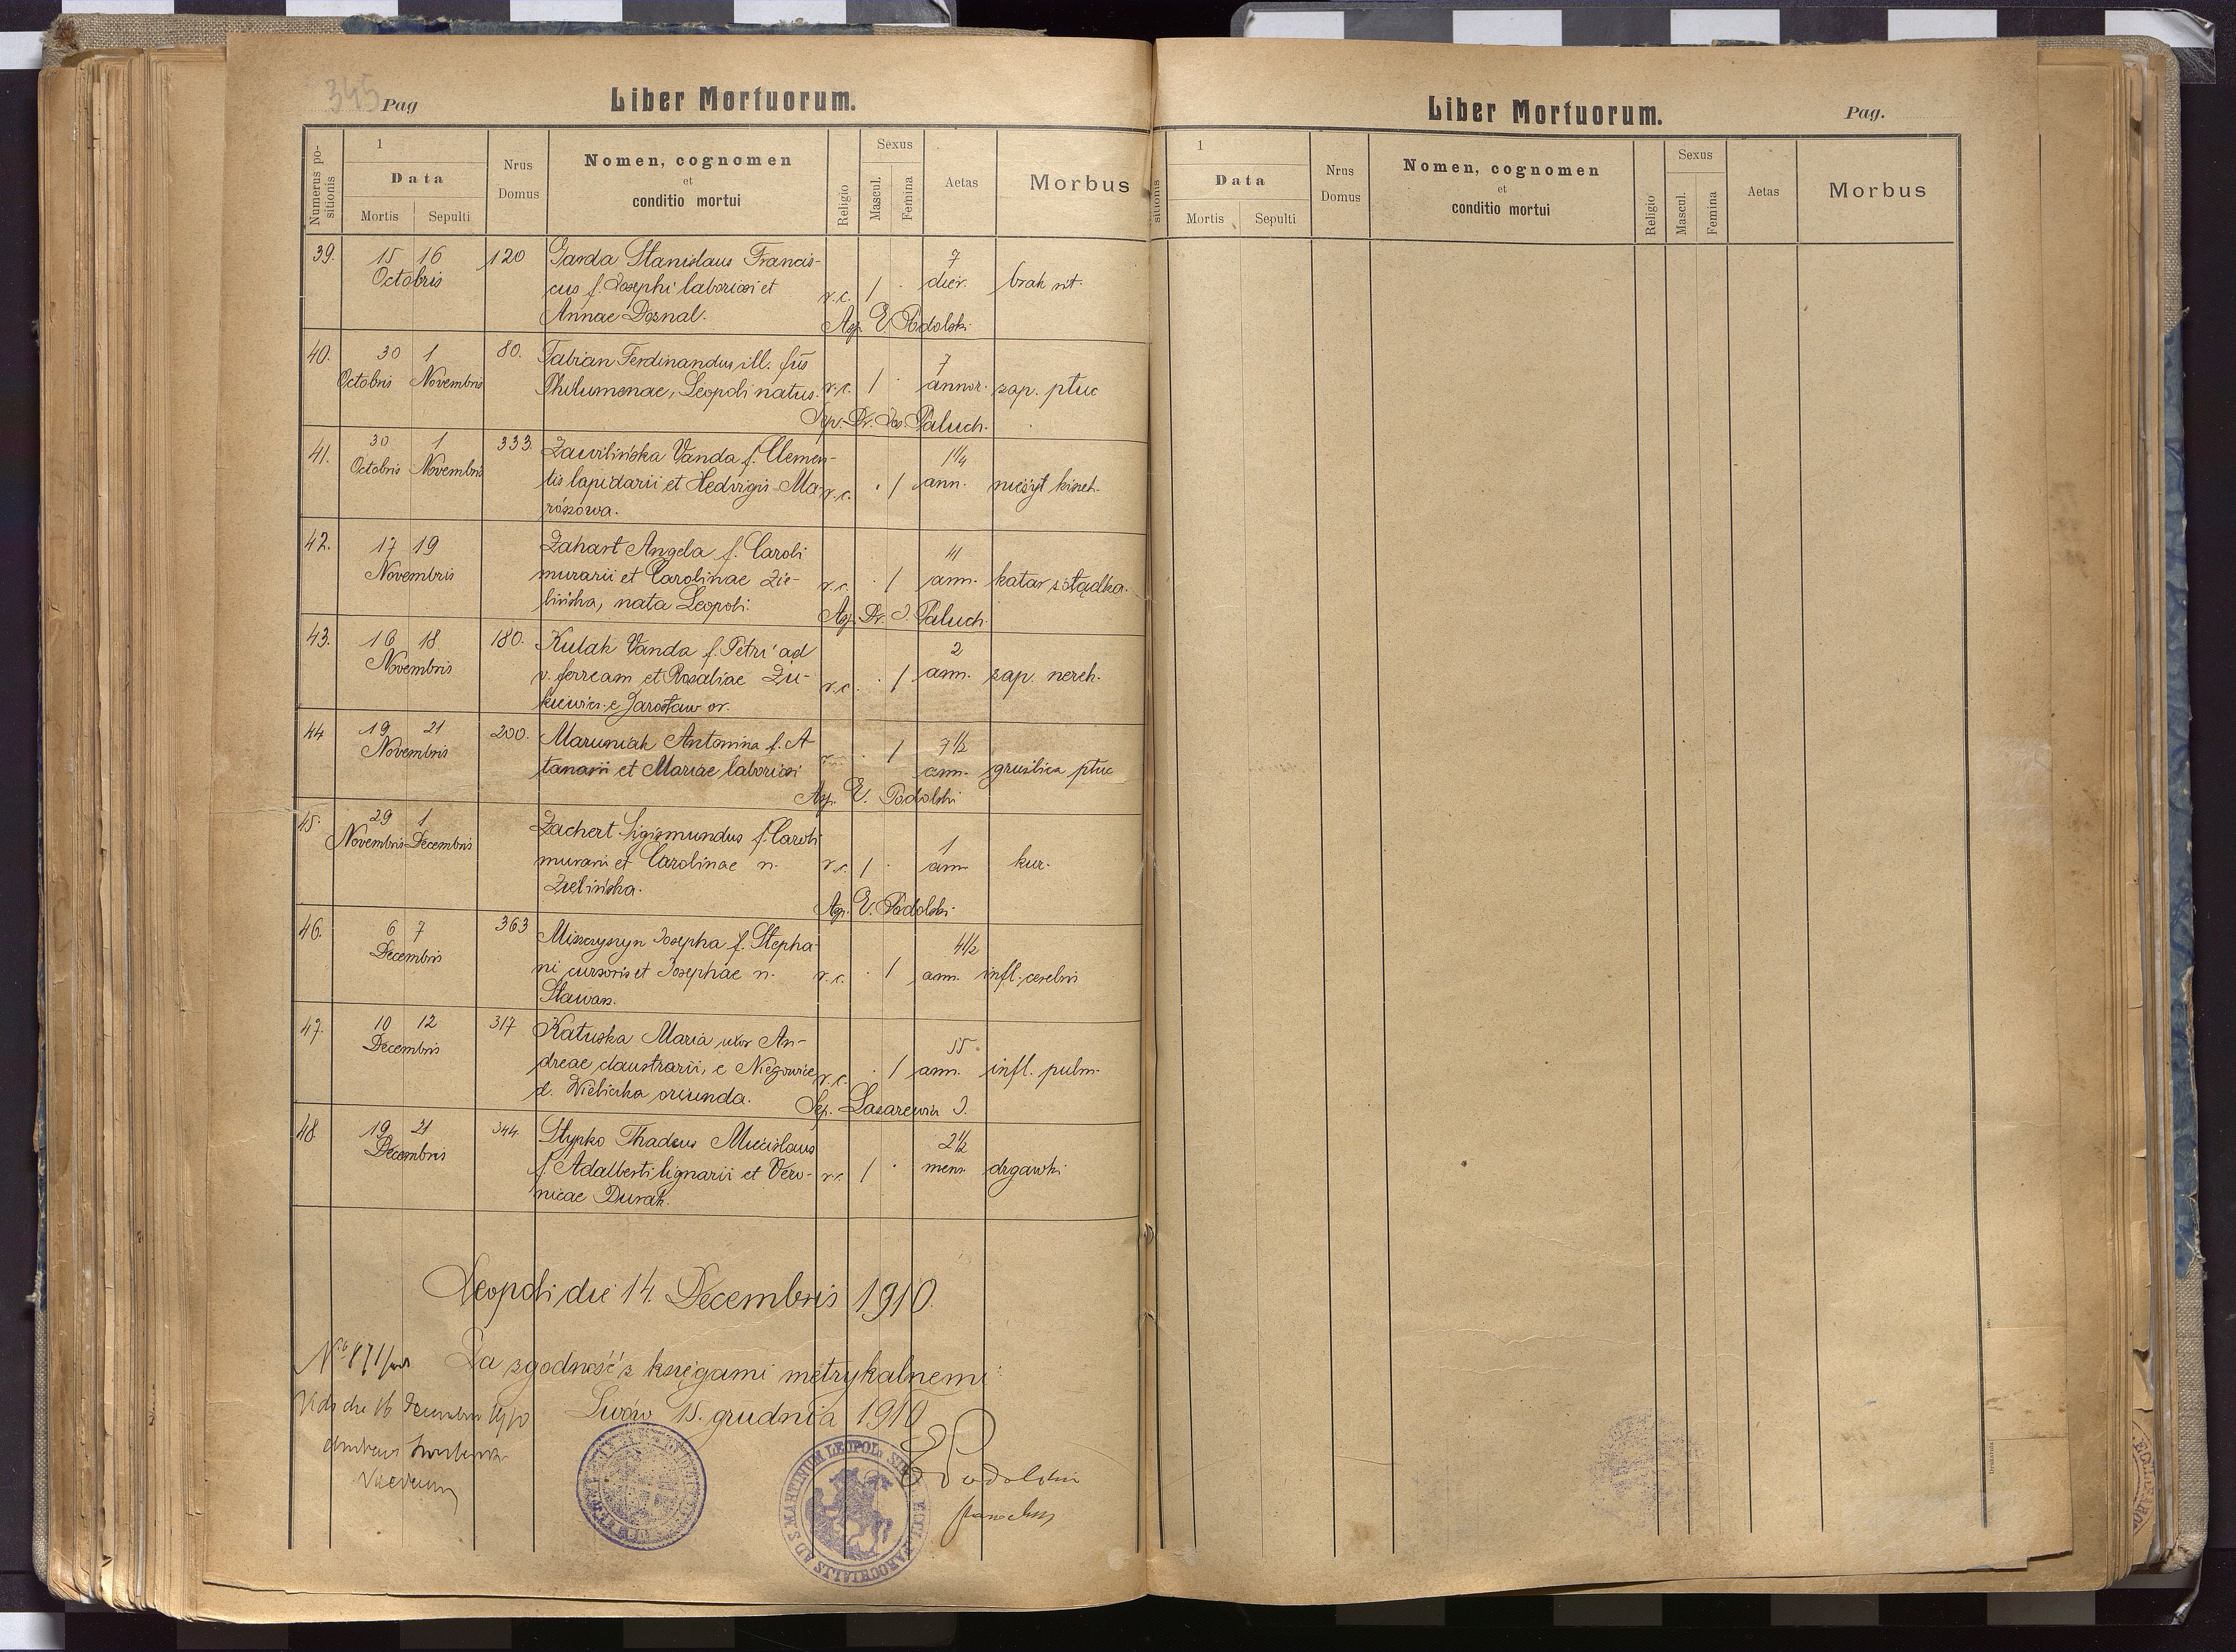 345 Pag
Liber Mortuorum.
Numerus positionis
1
Data
Mortis Sepulti
Nrus Domus
Nomen, cognomen
et
conditio mortui
Religio
Sexus
Mascul. Femina
Aetas
Morbus
39. 15 16 120 Garda Stanislaus Francis-
Octobris cus f. Josephi laboriosi et r.c. 1 · 7 dier. brak sił.
Annae Doznal.
Asp. E. Podolski
40. 30 1 80. Fabian Ferdinandus ill. fus 7
Octobris Novembris Philumenae, Leopoli natus. r.c. 1 · annor. zap. płuc
Sep. Dr. Jos. Paluch.
41. 30 1 333. Zawilińska Vanda f. Clemen- 1 1/4
Octobris Novembris tis lapidarii et Hedvigis Ma r.c. · 1 ann. nieżyt kiszek.
rószowa.
42. 17 19 Zahart Angela f. Caroli
Novembris murarii et Carolinae Zie- r.c. · 1 ann. katar żołądka.
lińska, nata Leopoli.
Asp. Dr. J. Paluch.
43. 16 18 180. Kulak Vanda f. Petri ad 2
Novembris v. ferream et Rosaliae r.c. · 1 ann. zap. nerek.
e Jarosław or.
44 19 21 200. Maruniak Antonina f. A 7 1/2
Novembris tanasii et Mariae laboriosi · 1 ann. gruźlica płuc
Asp. E. Podolski
45. 29 1 Zachert Sigismundus f. Caroli 1
Novembris Decembris murarii et Carolinae n. r.c. 1 · ann. kur.
Zielińska.
Asp. E. Podolski
46. 6 7 363 Miszczyszyn Josepha f. Stepha- 4 1/2
Decembris ni cursoris et Josephae n. r.c. · 1 ann. infl. cerebris
Stawarz.
47. 10 12 317 Katuska Maria uxor An- 55
Decembris dreae claustrarii, e Niegowice r.c. · 1 ann. infl. pulm.
d. Wieliczka oriunda.
Sep. Lazarewicz J.
48 19 21 344. Stypko Thadeus Miecislaus 2 1/2
Decembris f. Adalberti lignarii et Vero- r.c. 1 · mens. drgawki
nicae Durak.
Leopoli die 14. Decembris 1910.
Za zgodność z księgami metrykalnemi:
Lwów 15. grudnia 1910
No 871
die 16 Decembris 1910
E Podolski
parochus
AD S. MARTINUM LEOPOLI
Liber Mortuorum.
Pag.
sitionis
1
Data
Mortis Sepulti
Nrus Domus
Nomen, cognomen
et
conditio mortui
Religio
Sexus
Mascul. Femina
Aetas
Morbus